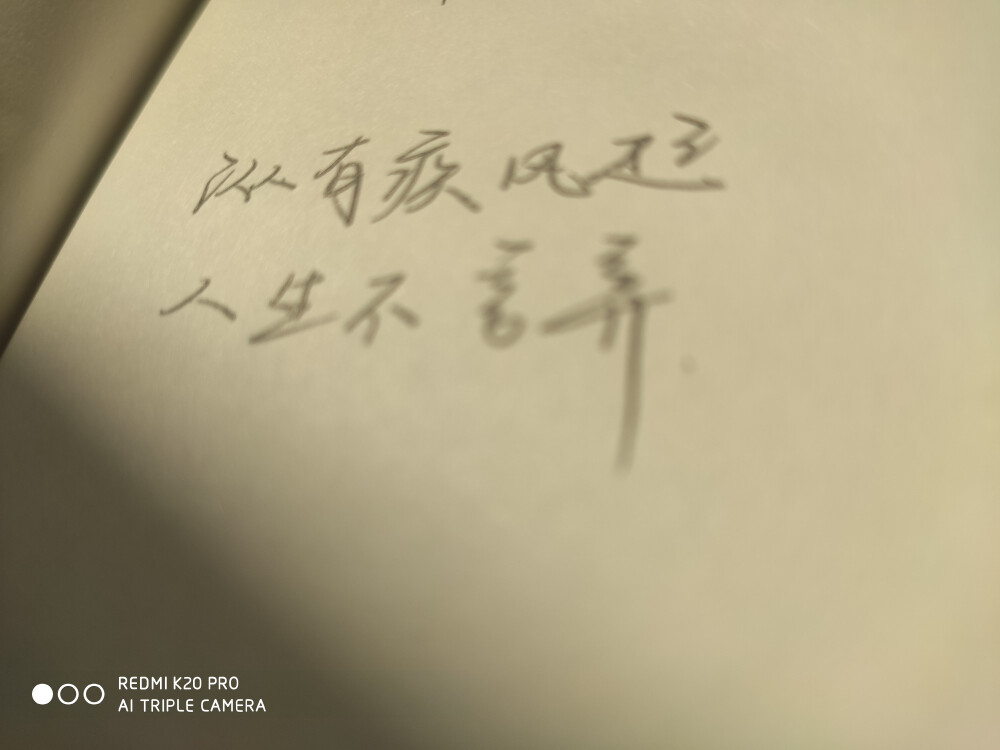 纵有疾风起
人生不言弃.
REDMI K20 PRO
AI TRIPLE CAMERA